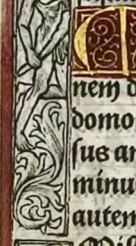 nem d
domo
sus an
minu
autem